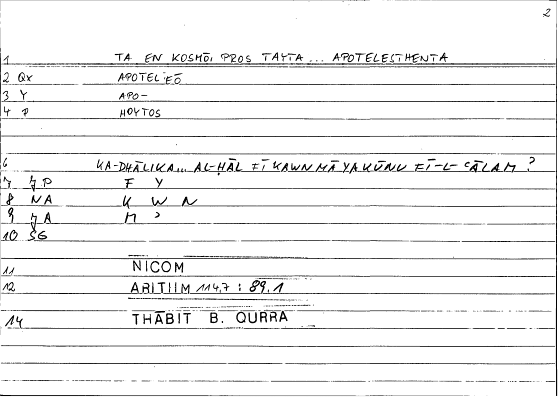 2
1 TA EN KOSMŌI PROS TAYTA ... APOTELESTHENTA
2 Qx APOTELEŌ
3 Y APO-
4 P HOYTOS
6 KA-DHĀLIKA... AL-ḤĀL FĪ KAWN MĀ YAKŪNU FĪ-L-ʿĀLAM ?
7 P F Y
8 NA K W N
9 A M ʾ
10 SG
11 NICOM
12 ARITHM 114,7 : 89,1
14 THĀBIT B. QURRA